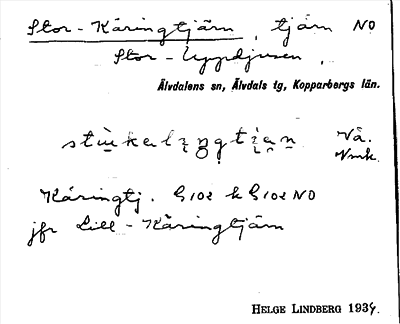 Stor-Käringtjärn, tjärn NO
Stor-Uppdjusen,
Älvdalens sn, Älvdals tg, Kopparbergs län.
Vå.
Käringtj. G102 k G102 NO
jfr Lill-Käringtjärn
HELGE LINDBERG 1934.